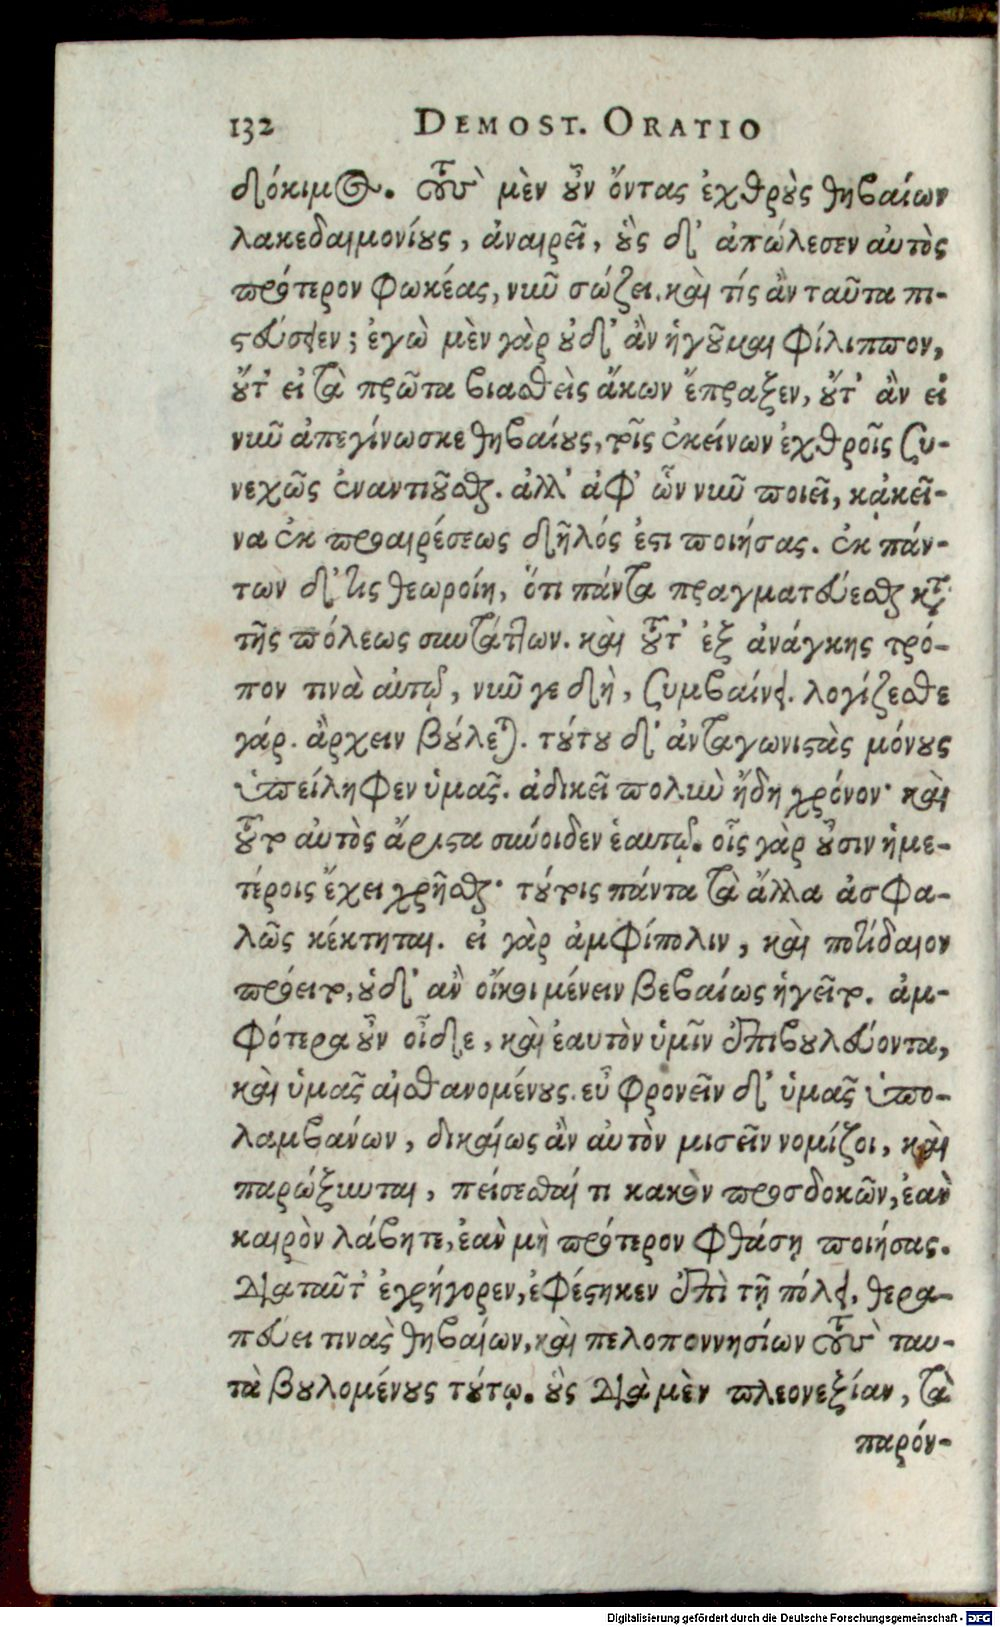 132 DEMOST. ORATIO
δόκιμος. τοὺς μὲν οὖν ὄντας ἐχθροὺς θηβαίων
λακεδαιμονίους, ἀναιρεῖ, οὓς δ' ἀπώλεσεν αὐτὸς
πρότερον φωκέας, νῦν σώζει. καὶ τίς ἂν ταῦτα πι-
στεύσειεν; ἐγὼ μὲν γὰρ οὐδ' ἂν ἡγοῦμαι φίλιππον,
οὔτ' εἰ τὰ πρῶτα βιασθεὶς ἄκων ἔπραξεν, οὔτ' ἂν εἰ
νῦν ἀπεγίνωσκε θηβαίους, τοῖς ἐκείνων ἐχθροῖς συ-
νεχῶς ἐναντιοῦσθαι. ἀλλ' ἀφ' ὧν νῦν ποιεῖ, κἀκεῖ-
να ἐκ προαιρέσεως δῆλός ἐστι ποιήσας. ἐκ πάν-
των δ' τις θεωροίη, ὅτι πάντα πραγματεύεσθαι κατὰ
τῆς πόλεως συντάττων. καὶ τοῦτ' ἐξ ἀνάγκης τρό-
πον τινὰ αὐτῷ, νῦν γε δὴ, συμβαίνει. λογίζεσθε
γάρ. ἄρχειν βούλεται. τούτου δ' ἀνταγωνιστὰς μόνους
ὑπείληφεν ὑμᾶς. ἀδικεῖ πολὺν ἤδη χρόνον· καὶ
τοῦτο αὐτὸς ἄριστα σύνοιδεν ἑαυτῷ. οἷς γὰρ οὖσιν ἡμε-
τέροις ἔχει χρῆσθαι· τούτοις πάντα τὰ ἄλλα ἀσφα-
λῶς κέκτηται. εἰ γὰρ ἀμφίπολιν, καὶ ποτίδαιον
πρόειτο, οὐδ' ἂν οἴκοι μένειν βεβαίως ἡγεῖτο. ἀμ-
φότερα οὖν οἶδε, καὶ ἑαυτὸν ὑμῖν ἐπιβουλεύοντα,
καὶ ὑμᾶς αἰσθανομένους. εὖ φρονεῖν δ' ὑμᾶς ὑπο-
λαμβάνων, δικαίως ἂν αὐτὸν μισεῖν νομίζοι, καὶ
παρώξυνται, πείσεσθαί τι κακὸν προσδοκῶν, ἐὰν
καιρὸν λάβητε, ἐὰν μὴ πρότερον φθάσῃ ποιήσας.
διὰ ταῦτ' ἐγρήγορεν, ἐφέστηκεν ἐπὶ τῇ πόλει. θερα-
πεύει τινὰς θηβαίων, καὶ πελοποννησίων τοὺς ταυ-
τὰ βουλομένους τούτῳ. οὓς διὰ μὲν πλεονεξίαν, τὰ
παρόν-
Digitalisierung gefördert durch die Deutsche Forschungsgemeinschaft - DFG